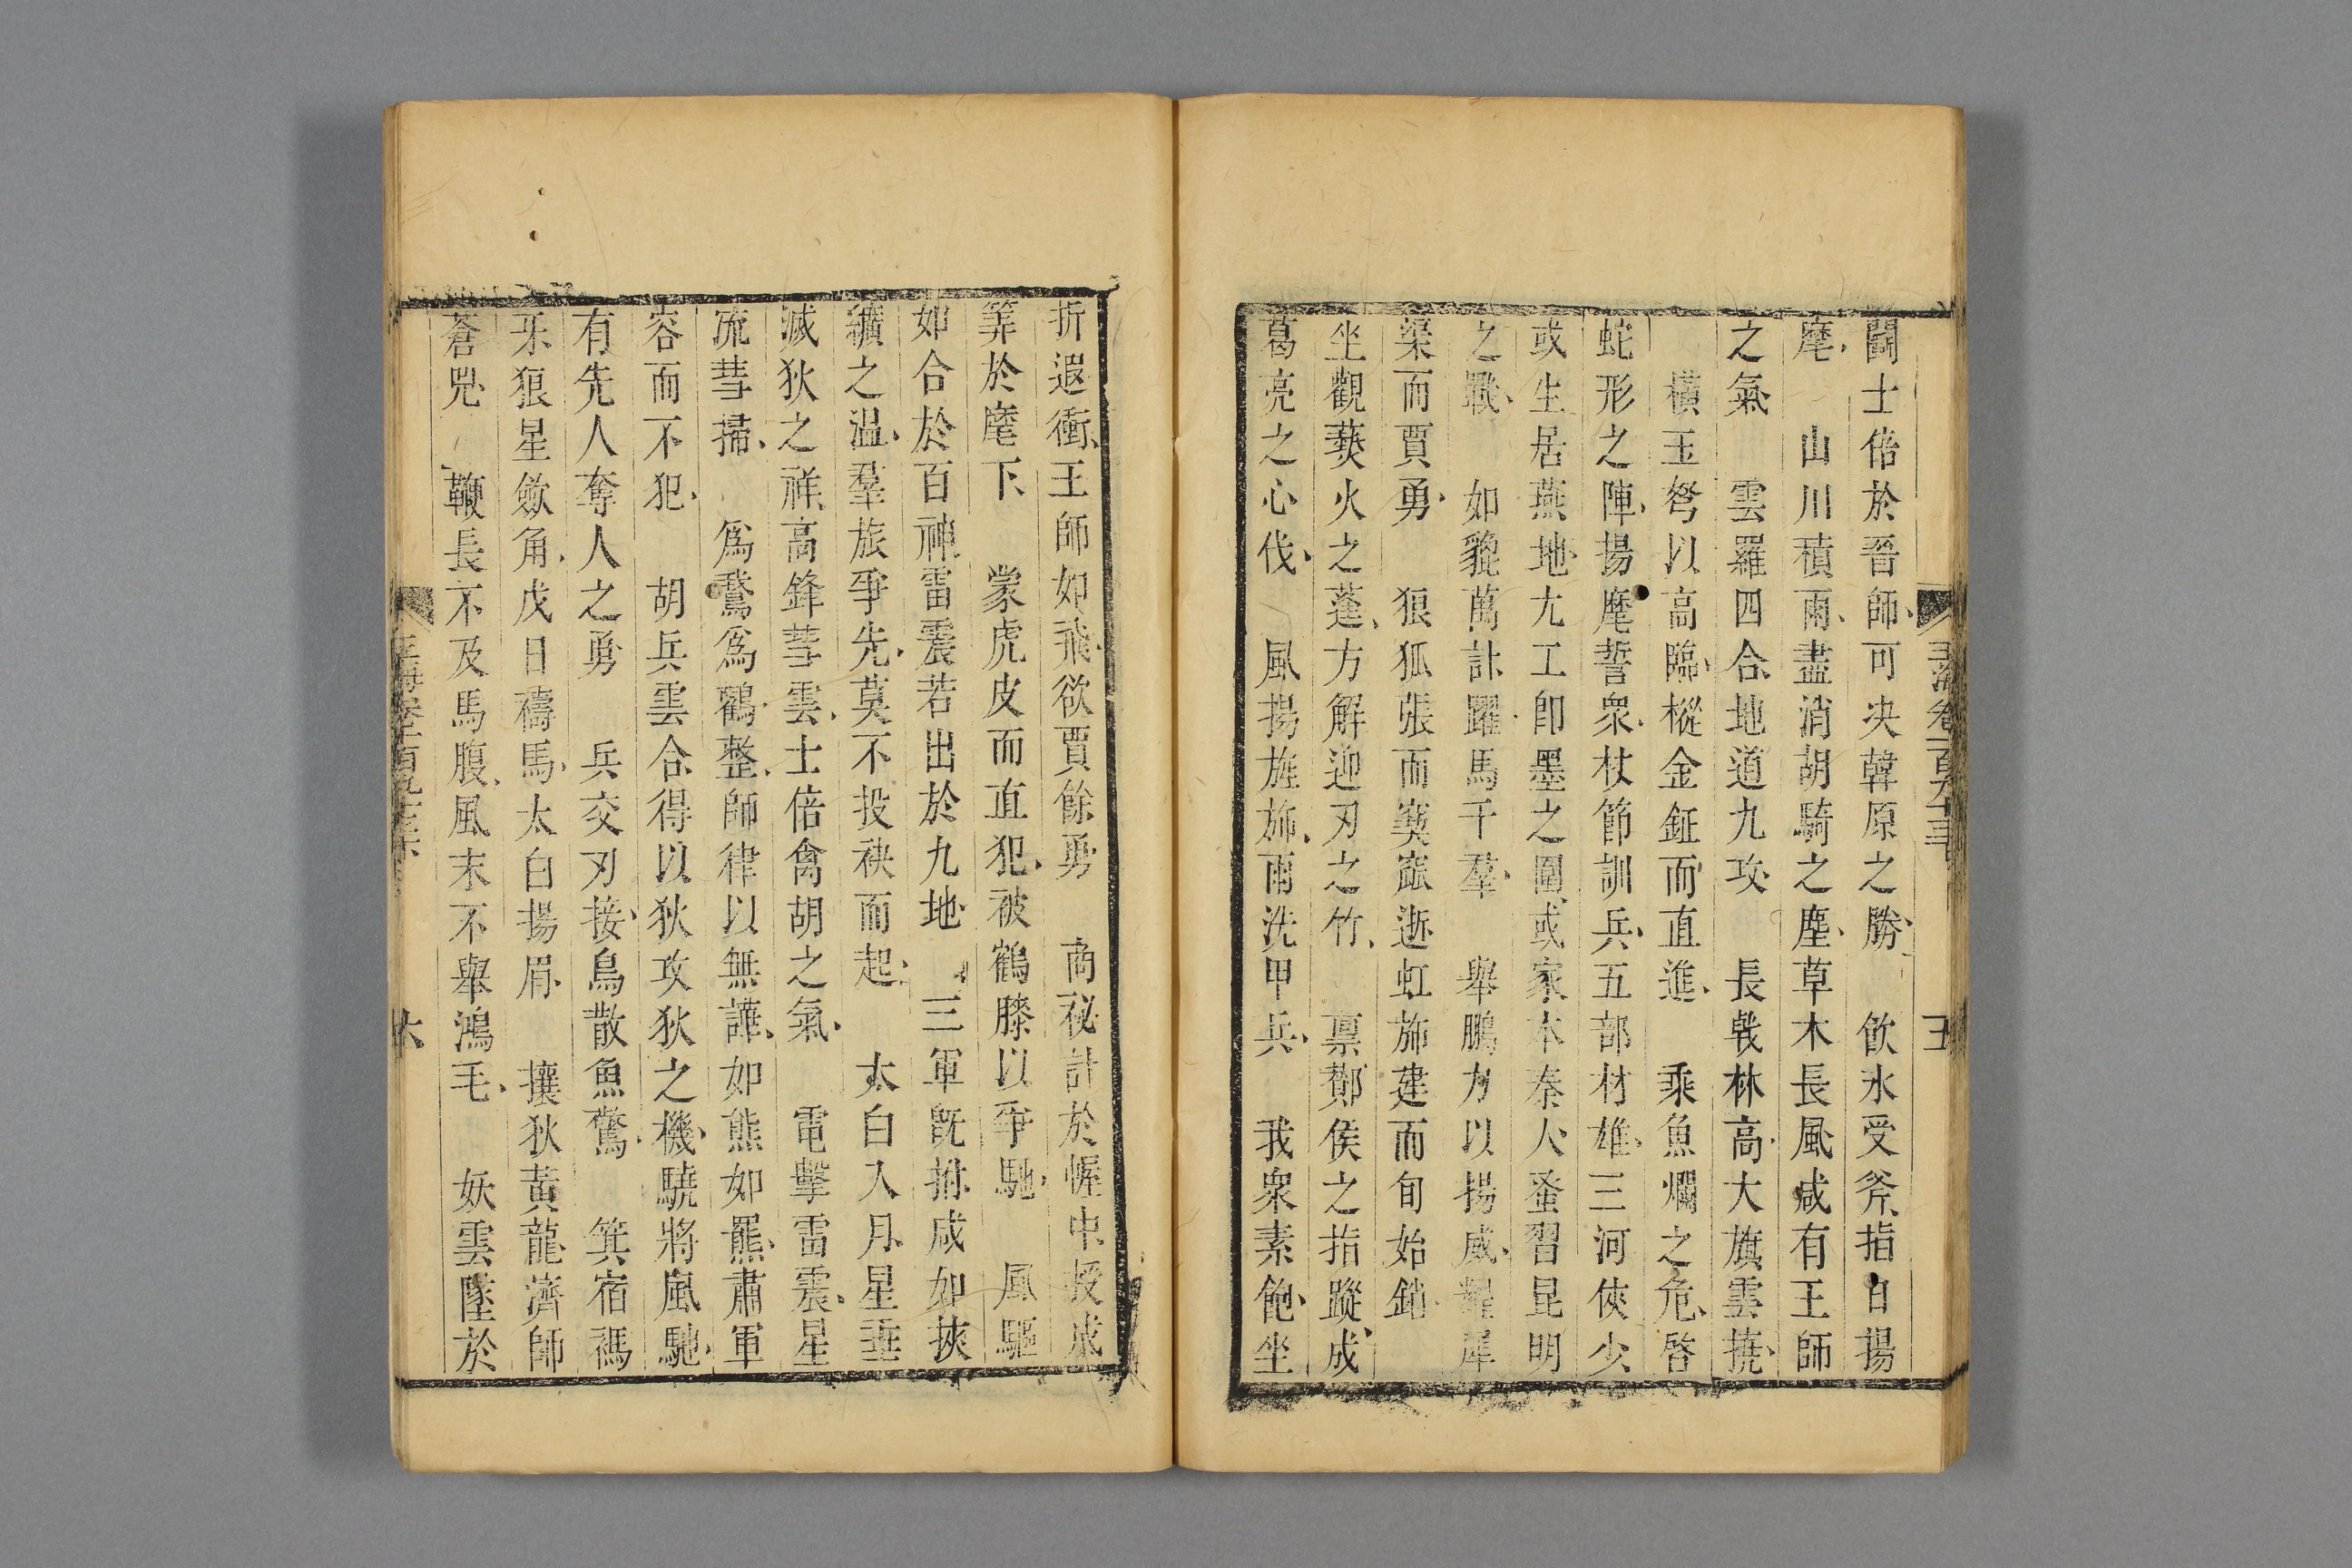 玉海卷一百九十三 五
鬪士倍於晉師可决韓原之勝 飲氷受斧指白揚
麾 山川積雨盡消胡騎之塵草木長風咸有王師
之氣 雲羅四合地道九攻 長戟林高大旗雲撓
橫玉弩以高臨樅金鉦而直進 乘魚爛之危啓
蛇形之陣揚麾誓衆杖節訓兵五部材雄三河俠少
或生居燕地尢工卽墨之圍或家本秦人蚤習昆明
之戰 如貔萬計躍馬千羣 舉鵬力以揚威耀犀
渠而賈勇 狼狐張而猰㺄逝虹旆建而旬始銷
坐觀爇火之蓬方解迎刃之竹 禀鄼侯之指蹤成
葛亮之心伐 風揚旌旆雨洗甲兵 我衆素飽坐
折遐衝王師如飛欲賈餘勇 商祕計於幄中授成
筭於麾下 蒙虎皮而直犯被鶴膝以爭馳 風驅
如合於百神雷震若出於九地 三軍旣拊咸如挾
纊之温羣旅爭先莫不投袂而起 太白入月星垂
滅狄之祥高鋒彗雲士倍禽胡之氣 電擊雷震星
流彗掃 爲鵞爲鸛整師律以無譁如熊如羆肅軍
容而不犯 胡兵雲合得以狄攻狄之機驍將風馳
有先人奪人之勇 兵交刃接鳥散魚驚 箕宿禡
牙狼星斂角戊日禱馬太白揚眉 攘狄黃龍濟師
蒼兕 鞭長不及馬腹風末不舉鴻毛 妖雲墜於
玉海卷一百九十三 六